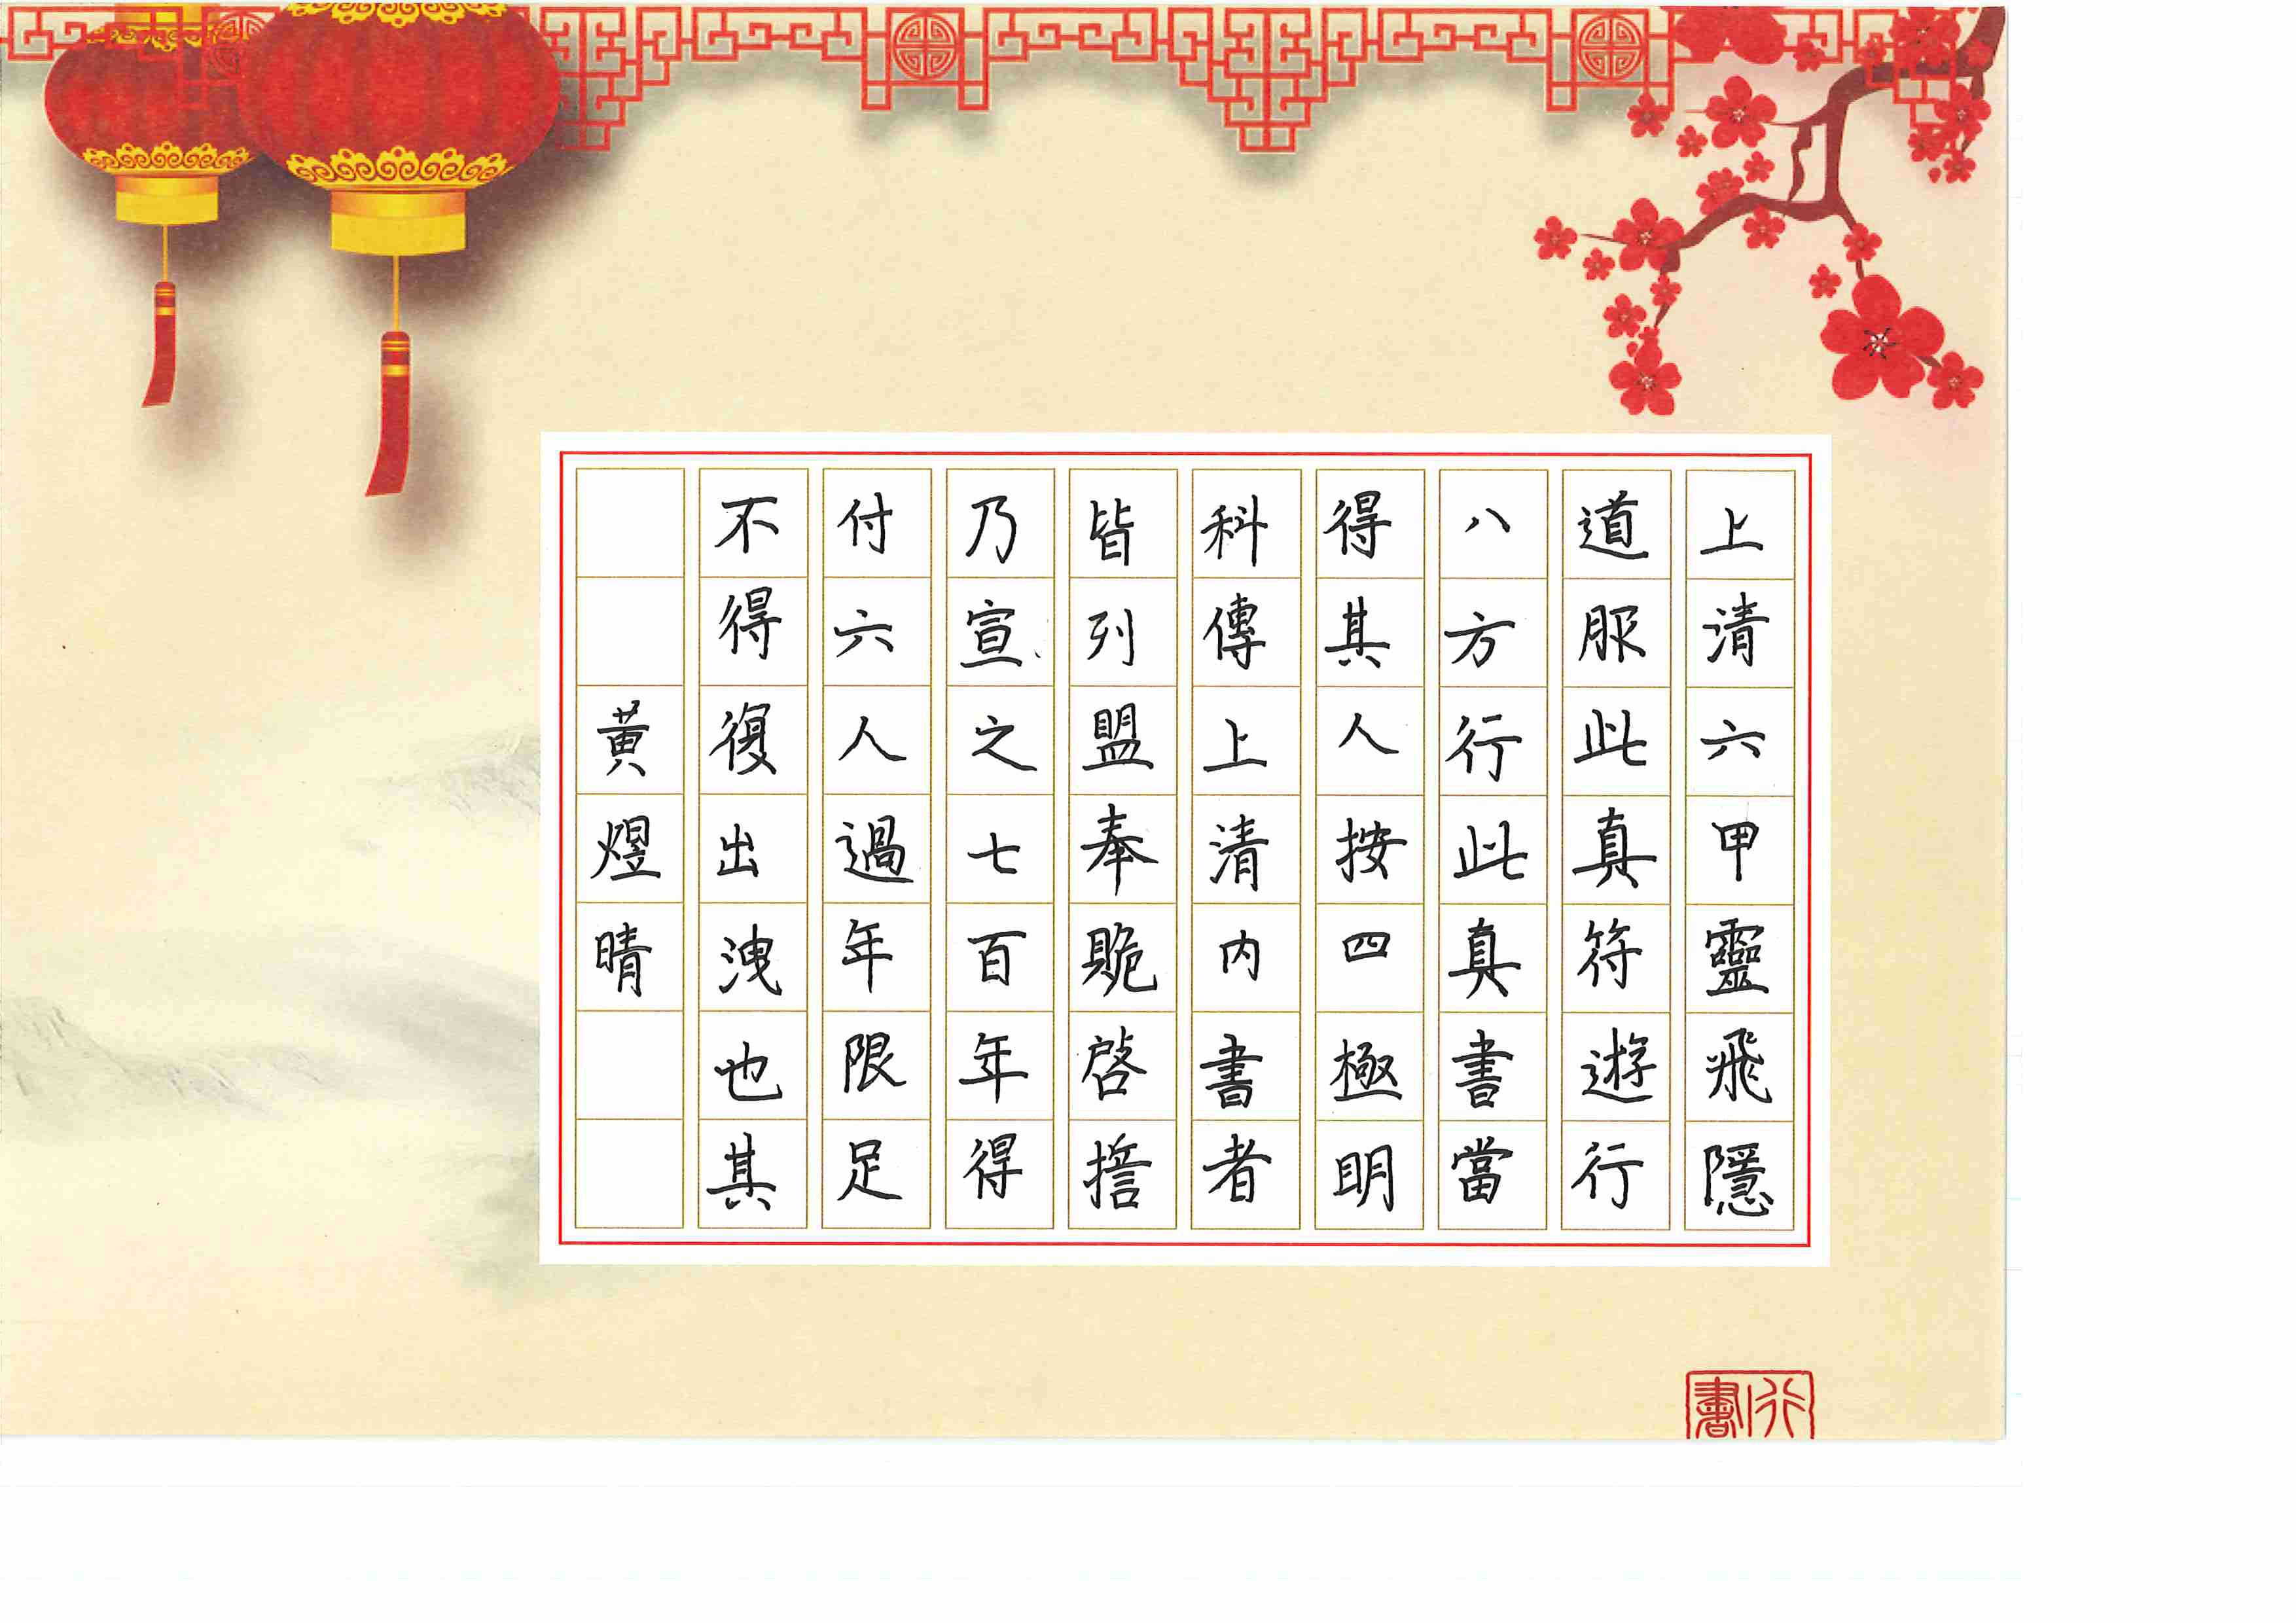 上清六甲靈飛隱
道服此真符遊行
八方行此真書當
得其人按四極明
科傳上清内書者
皆列盟奉䞈啓擔
乃宣之七百年得
付六人過年限足
不得復出洩也其
黃煜晴
行書